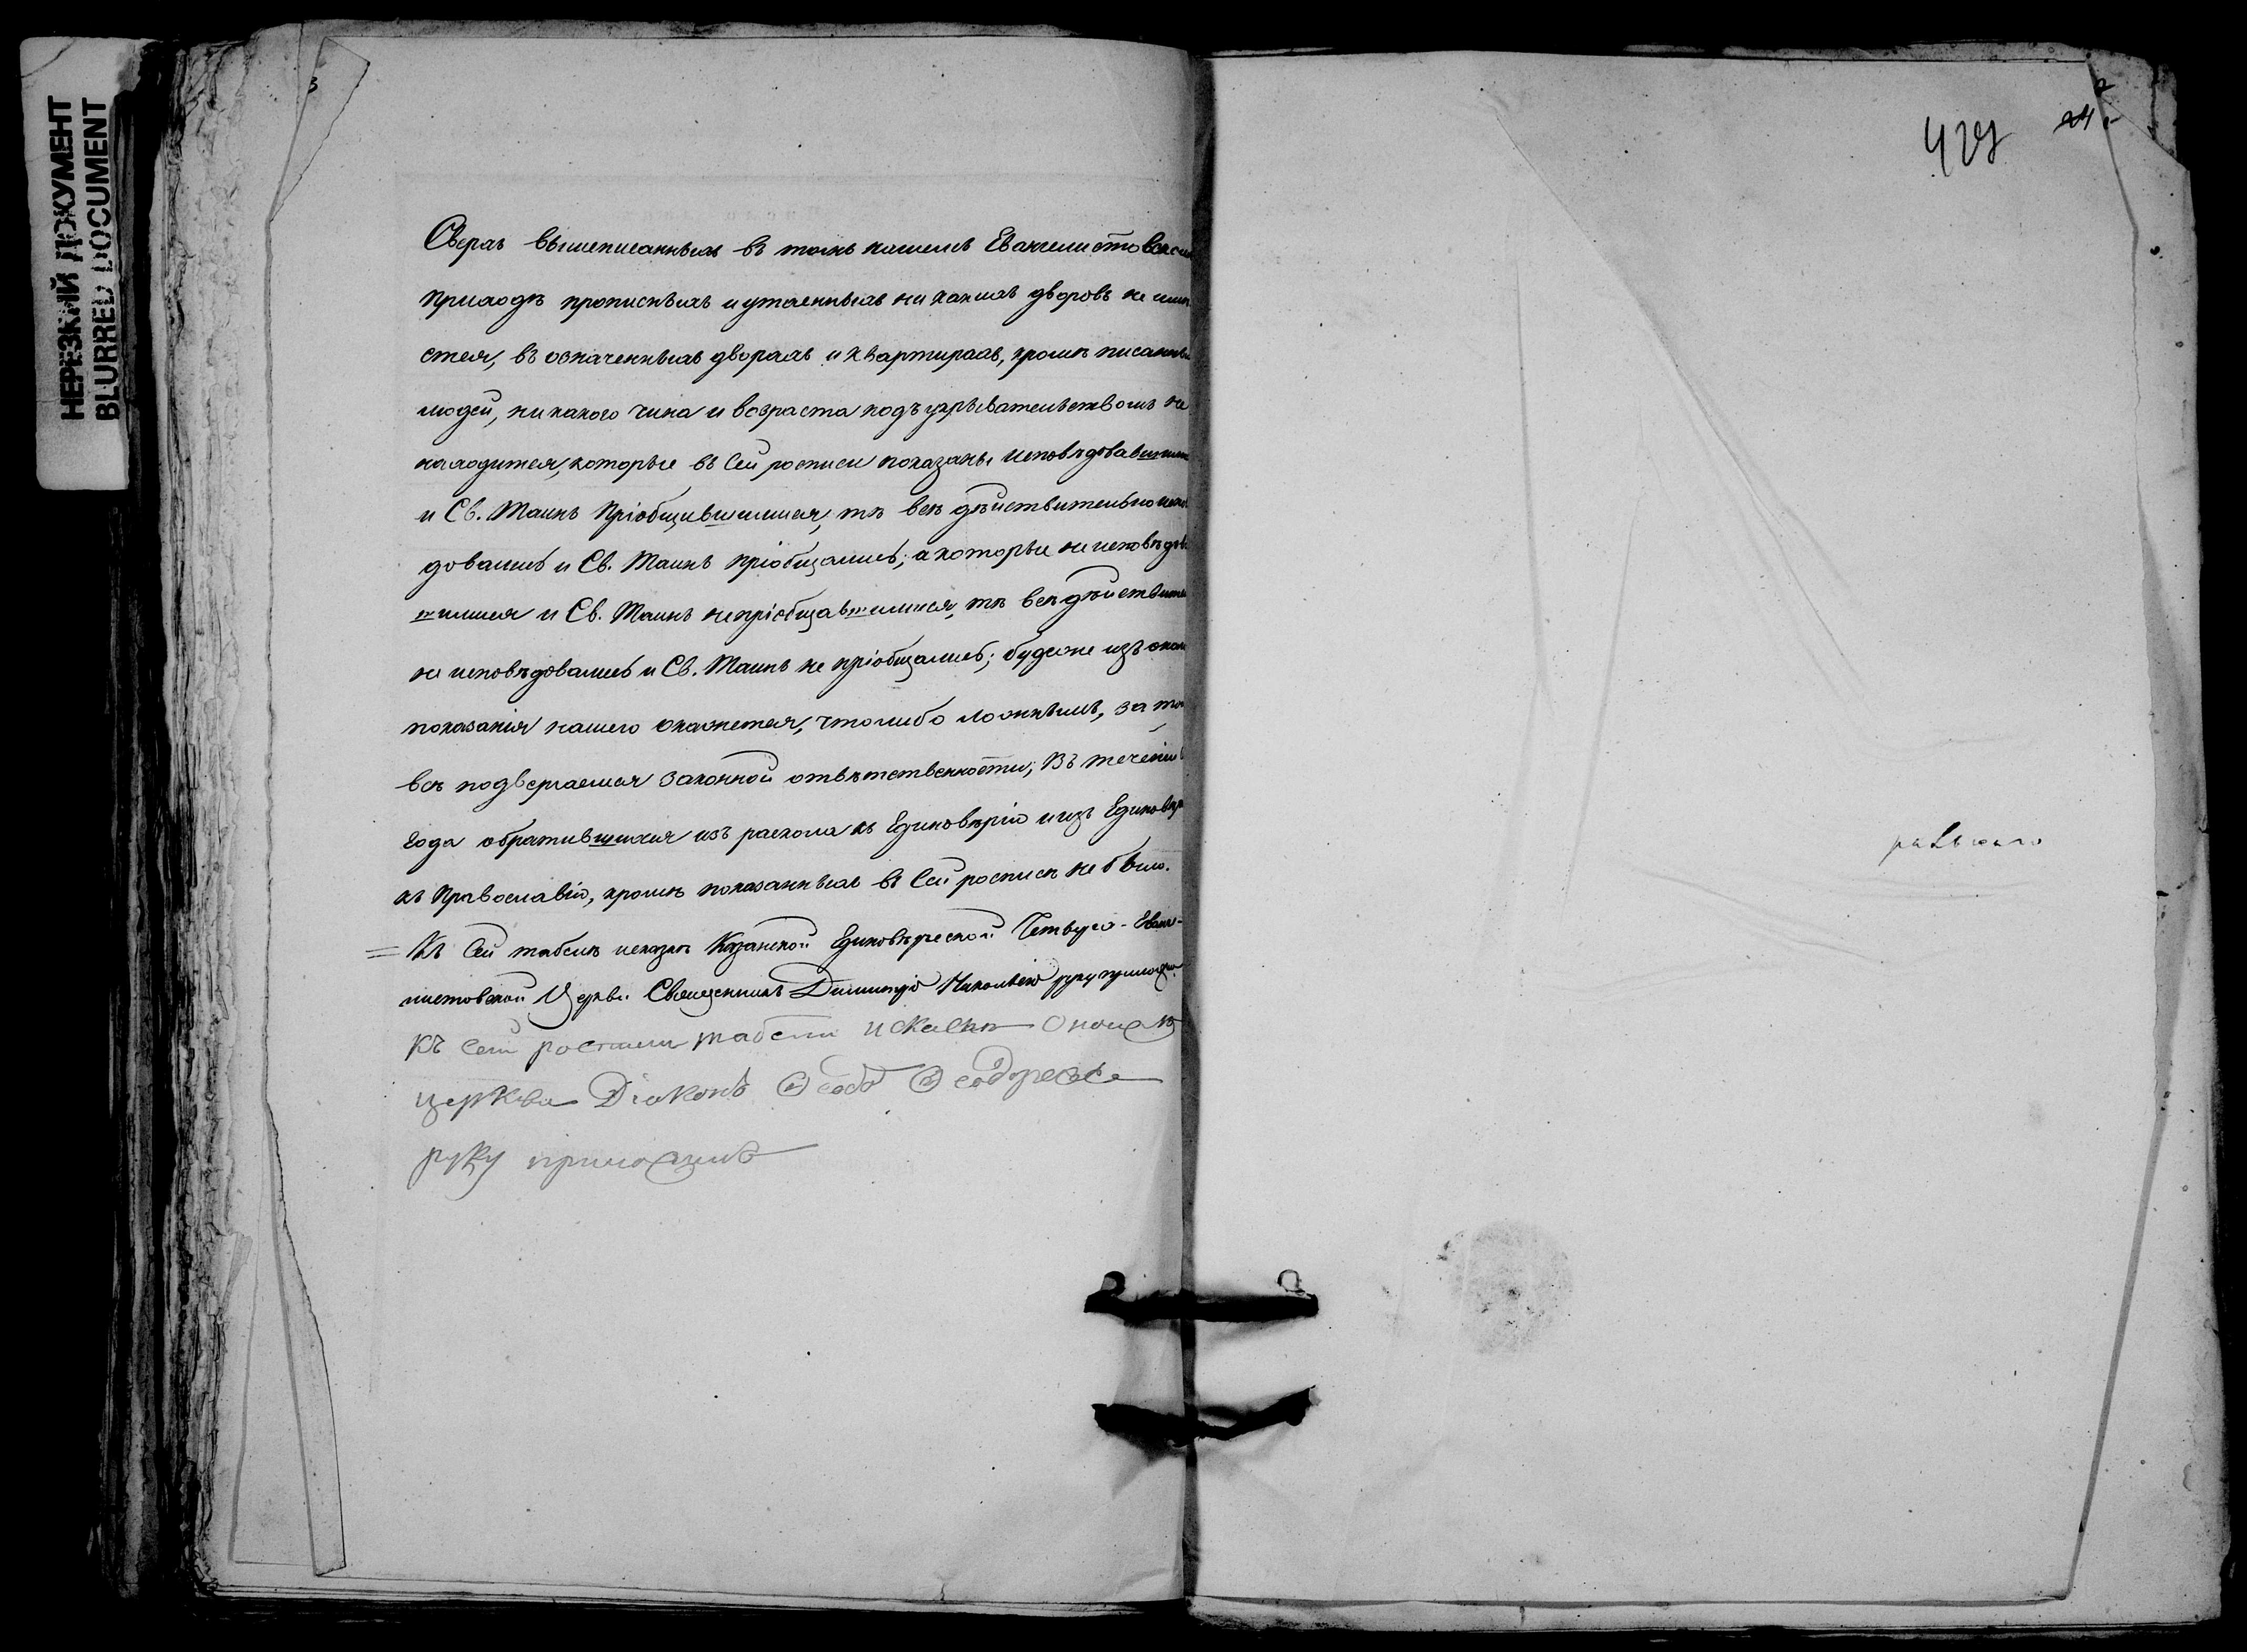 НЕРЕЗКИЙ ДОКУМЕНТ
BLURRED DOCUMENT
3
Сверхъ вышеписанныхъ въ томъ нашемъ Евангелистовском
приходѣ прописныхъ и утаенныхъ ни какихъ дворовъ не имѣ
ется, въ означенныхъ дворахъ и квартирахъ, кромѣ писанны
людей, никакого чина и возраста подъ укрывательствомъ не
находится, которые въ сей росписи показаны исповѣдовавшими
и Св. Таинъ пріобщившимися, тѣ всѣ дѣйствительно испо
довались и Св. Таинъ пріобщались; а которые не исповѣдова
шимися и Св. Таинъ непріобщавшимися, тѣ всѣ дѣйствите
не исповѣдовались и Св. Таинъ не пріобщались; будеже изъ
показанія нашего окажется, что либо ложнымъ, за то
всѣ подвергаемся законной отвѣтственности; въ теченіи
года обратившихся изъ раскола къ Единовѣрію и изъ Единовѣр
къ Православію, кромѣ показанныхъ въ сей росписи не было.
= Къ сей табели исказкѣ Казанской Единовѣрческой Четверо-Еванге-
листовской Церкви Священникъ Димитрій руку приложи
къ сей росписи табели искаскѣ
церкви Діаконъ
руку приложилъ
427
24
2